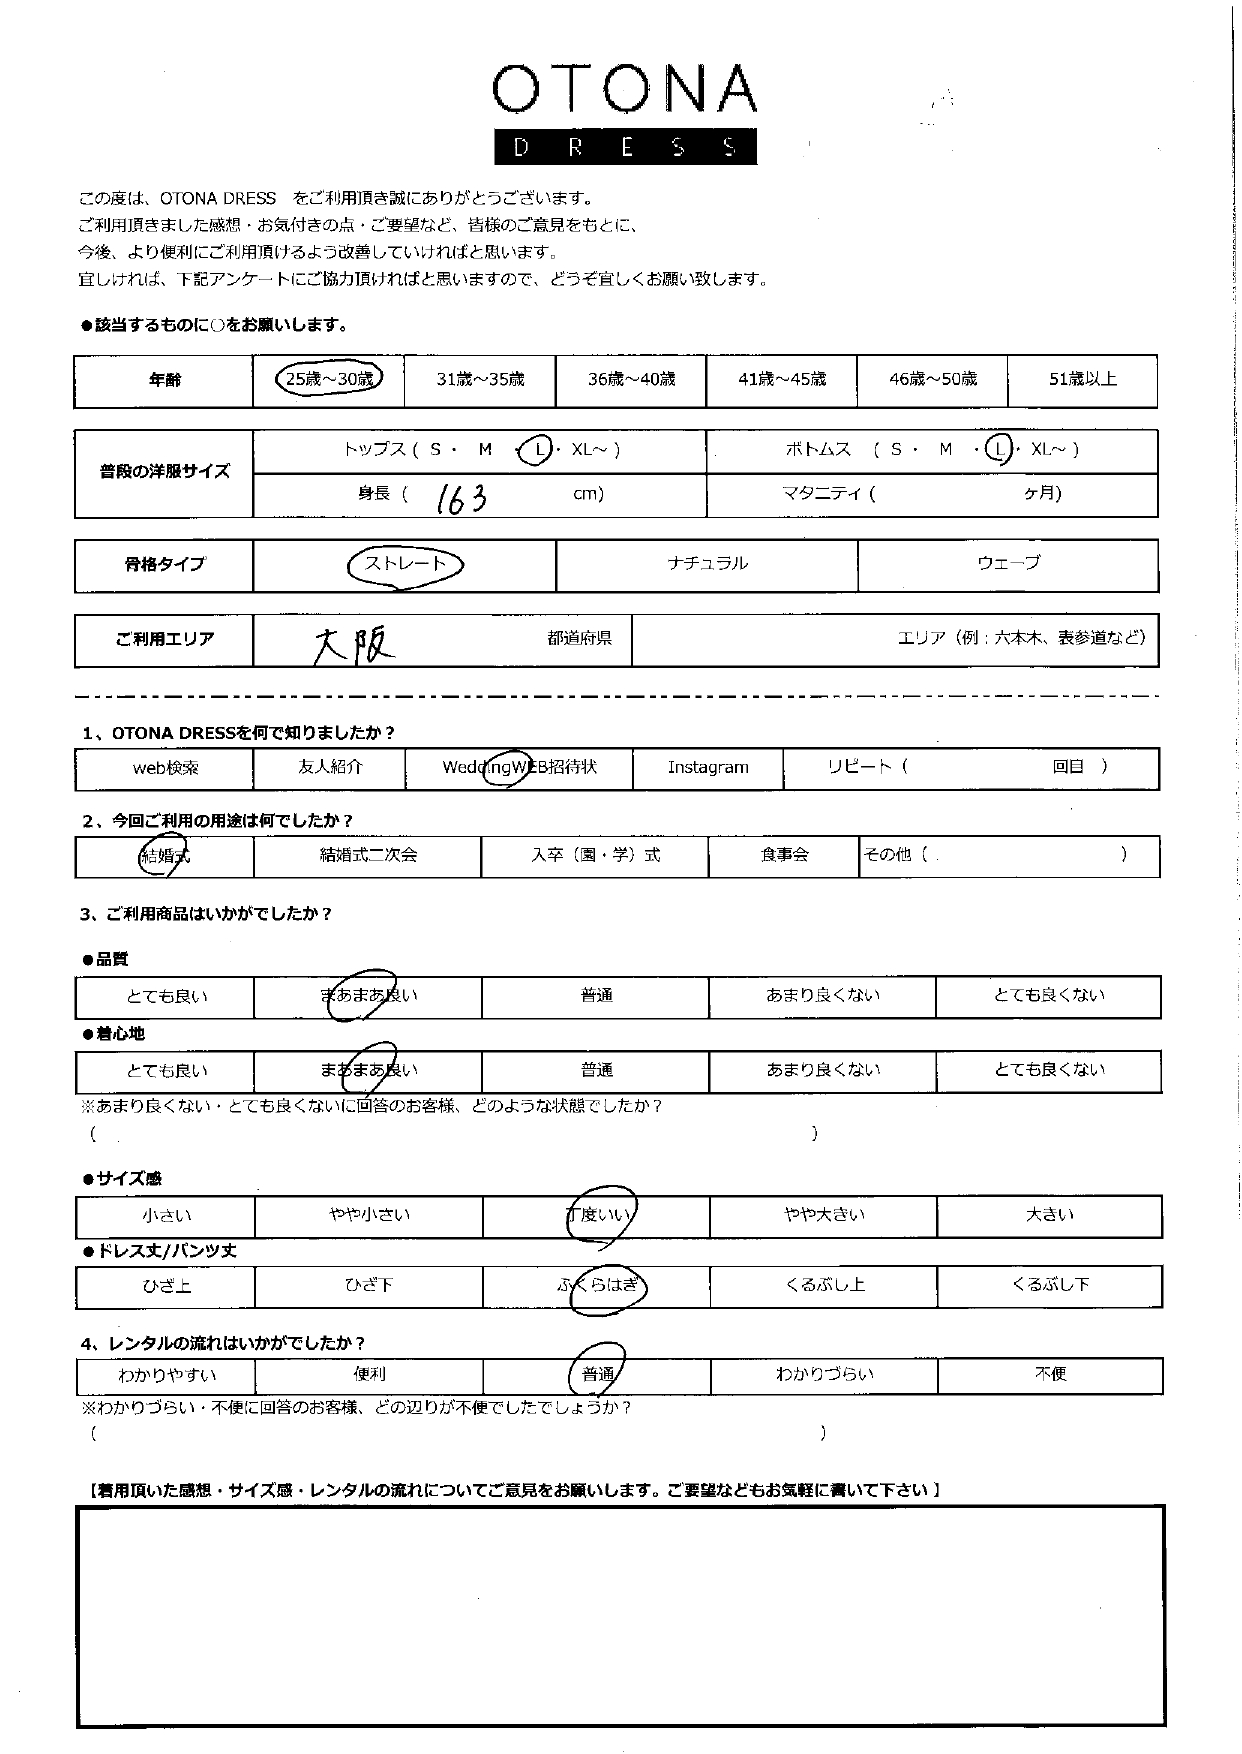 OTONA
DRESS
この度は、OTONA DRESS をご利用頂き誠にありがとうございます。
ご利用頂きました感想・お気付きの点・ご要望など、皆様のご意見をもとに、
今後、より便利にご利用頂けるよう改善していければと思います。
宜しければ、下記アンケートにご協力頂ければと思いますので、どうぞ宜しくお願い致します。
●該当するものに○をお願いします。
年齢 25歳～30歳 31歳～35歳 36歳～40歳 41歳～45歳 46歳～50歳 51歳以上
普段の洋服サイズ トップス ( S ・ M ・ L ・ XL～ ) ボトムス ( S ・ M ・ L ・ XL～ )
身長 ( 163 cm) マタニティ ( ヶ月)
骨格タイプ ストレート ナチュラル ウェーブ
ご利用エリア 大阪 都道府県 エリア（例：六本木、表参道など）
1、OTONA DRESSを何で知りましたか？
web検索 友人紹介 WeddingWEB招待状 Instagram リピート ( 回目 )
2、今回ご利用の用途は何でしたか？
結婚式 結婚式二次会 入卒（園・学）式 食事会 その他 ( )
3、ご利用商品はいかがでしたか？
●品質
とても良い まあまあ良い 普通 あまり良くない とても良くない
●着心地
とても良い まあまあ良い 普通 あまり良くない とても良くない
※あまり良くない・とても良くないに回答のお客様、どのような状態でしたか？
( )
●サイズ感
小さい やや小さい 丁度いい やや大きい 大きい
●ドレス丈/パンツ丈
ひざ上 ひざ下 ふくらはぎ くるぶし上 くるぶし下
4、レンタルの流れはいかがでしたか？
わかりやすい 便利 普通 わかりづらい 不便
※わかりづらい・不便に回答のお客様、どの辺りが不便でしたでしょうか？
( )
【着用頂いた感想・サイズ感・レンタルの流れについてご意見をお願いします。ご要望などもお気軽に書いて下さい】